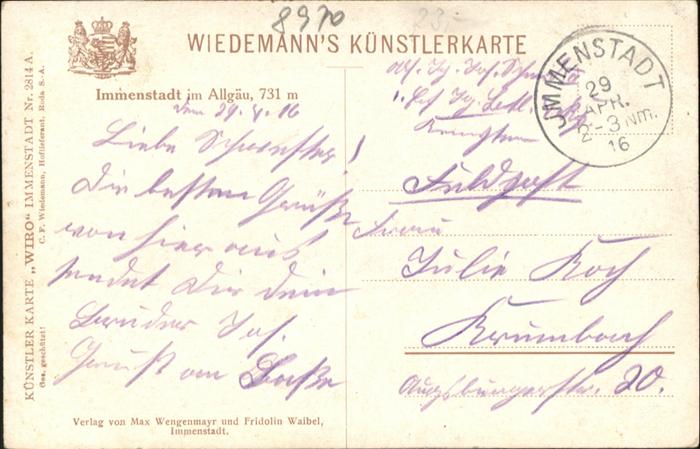 8970
23.-
WIEDEMANN'S KÜNSTLERKARTE
Immenstadt im Allgäu, 731 m
den 29.4.16
Liebe Schwester!
Die besten Grüße
von hier aus
sendet Dir dein
Bruder Jos.
Gruß an
KÜNSTLER KARTE „WIRO" IMMENSTADT Nr. 2814 A.
Ges. geschützt! C. F. Wiedemann, Hoflieferant, Roda S.-A.
Verlag von Max Wengenmayr und Fridolin Waibel,
Immenstadt.
IMMENSTADT
29
APR.
2-3 Nm.
16
Abs. Jos.
Kempten
Feldpost
Frau
Julie Koch
Krumbach
Augsburgerstr. 20.